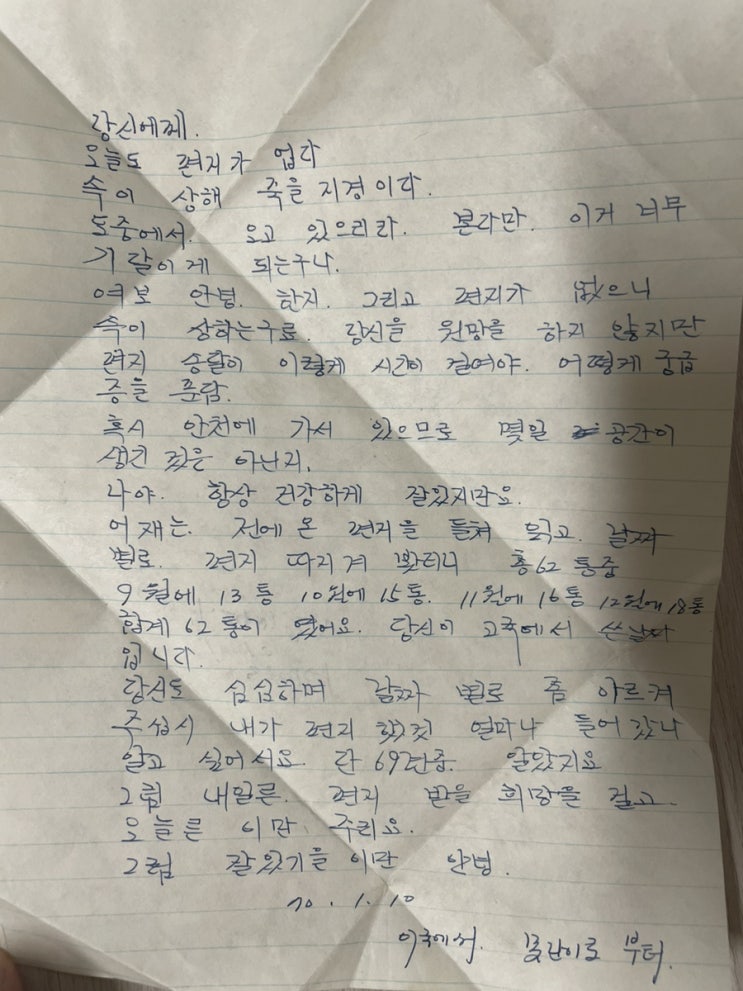 당신에께.
오늘도 편지가 업다
속이 상해 죽을 지경이다.
도중에서. 오고 있으리라. 본라만. 이거 너무
기 랄이게 되는구나.
여보 안녕. 한지. 그리고 편지가 없으니
속이 상하는구료. 당신을 원망를 하지 않지만
편지 승랄이 이렇게 시간이 걸여야. 어떻게 궁급
증을 푼담.
혹시 안천에 가서 있으므로 몇일 공간이
생긴 것은 아닌지.
나야. 항상 건강하게 잘있지만요.
어재는. 전에 온 편지을 들쳐 읽고. 날짜
별로. 편지 따지게 봣터니 총62통중
9월에 13통 10월에 15통. 11월에 16통 12월에 18통
합계 62통이 였어요. 당신이 고국에서 쓴날자
입니다.
당신도 심심하며 날짜 별로 좀 아르켜
주십시 내가 편지 했것 얼마나 들어 갔나
알고 싶어서요. 단 69년중. 알았지요
그럼 내일른. 편지 받을 희망을 걸고.
오늘른 이만 주리요.
그럼 잘있기을 이만 안녕.
70. 1. 10
이국에서. 부터.